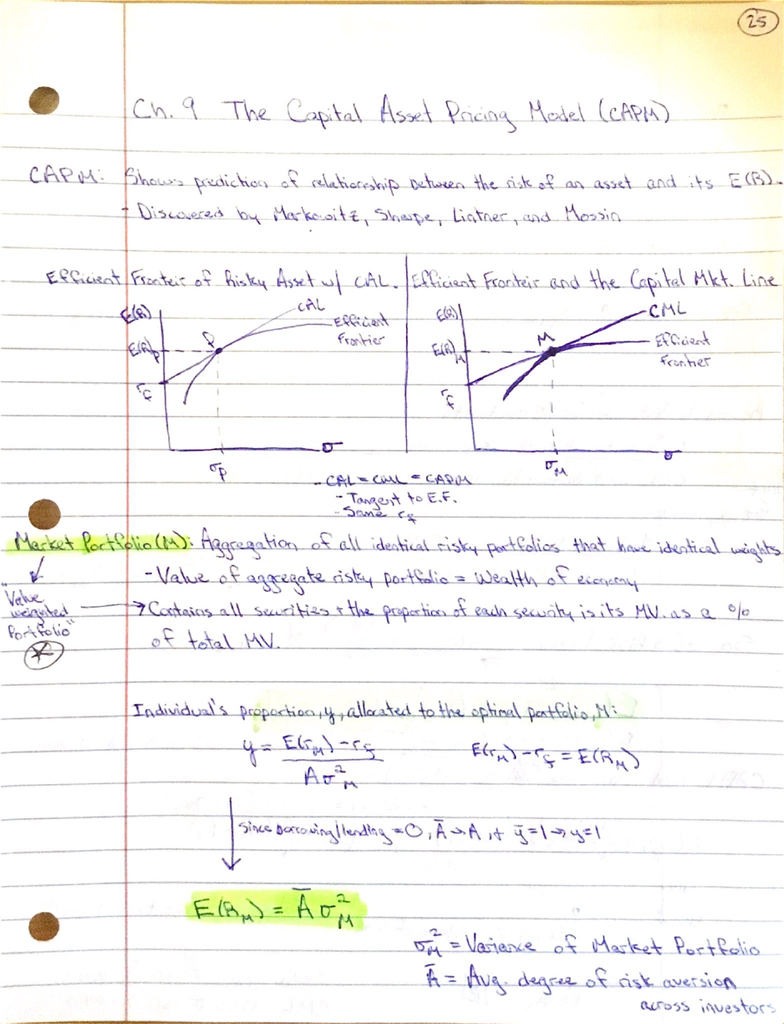 25
Ch. 9 The Capital Asset Pricing Model (CAPM)
CAPM: Shows prediction of relationship between the risk of an asset and its E(R).
- Discovered by Markowitz, Sharpe, Lintner, and Mossin
Efficient Fronteir of Risky Asset w/ CAL.
E(R)
CAL
Efficient
Frontier
E(R)p
P
rf
σ
σp
Efficient Fronteir and the Capital Mkt. Line
E(R)
CML
Efficient
Frontier
E(R)M
M
rf
σ
σM
- CAL = CML = CAPM
- Tangent to E.F.
- Same rf
Market Portfolio (M): Aggregation of all identical risky portfolios that have identical weights
- Value of aggregate risky portfolio = Wealth of economy
"Value
weighted
Portfolio"
→ Contains all securities + the proportion of each security is its MV. as a %
of total MV.
Individual's proportion, y, allocated to the optimal portfolio, M:
y = (E(rM) - rf) / (Aσ²M)
E(rM) - rf = E(RM)
since borrowing/lending = 0, Ā → A, + ȳ = 1 → y = 1
E(RM) = Āσ²M
σ²M = Variance of Market Portfolio
Ā = Avg. degree of risk aversion
across investors